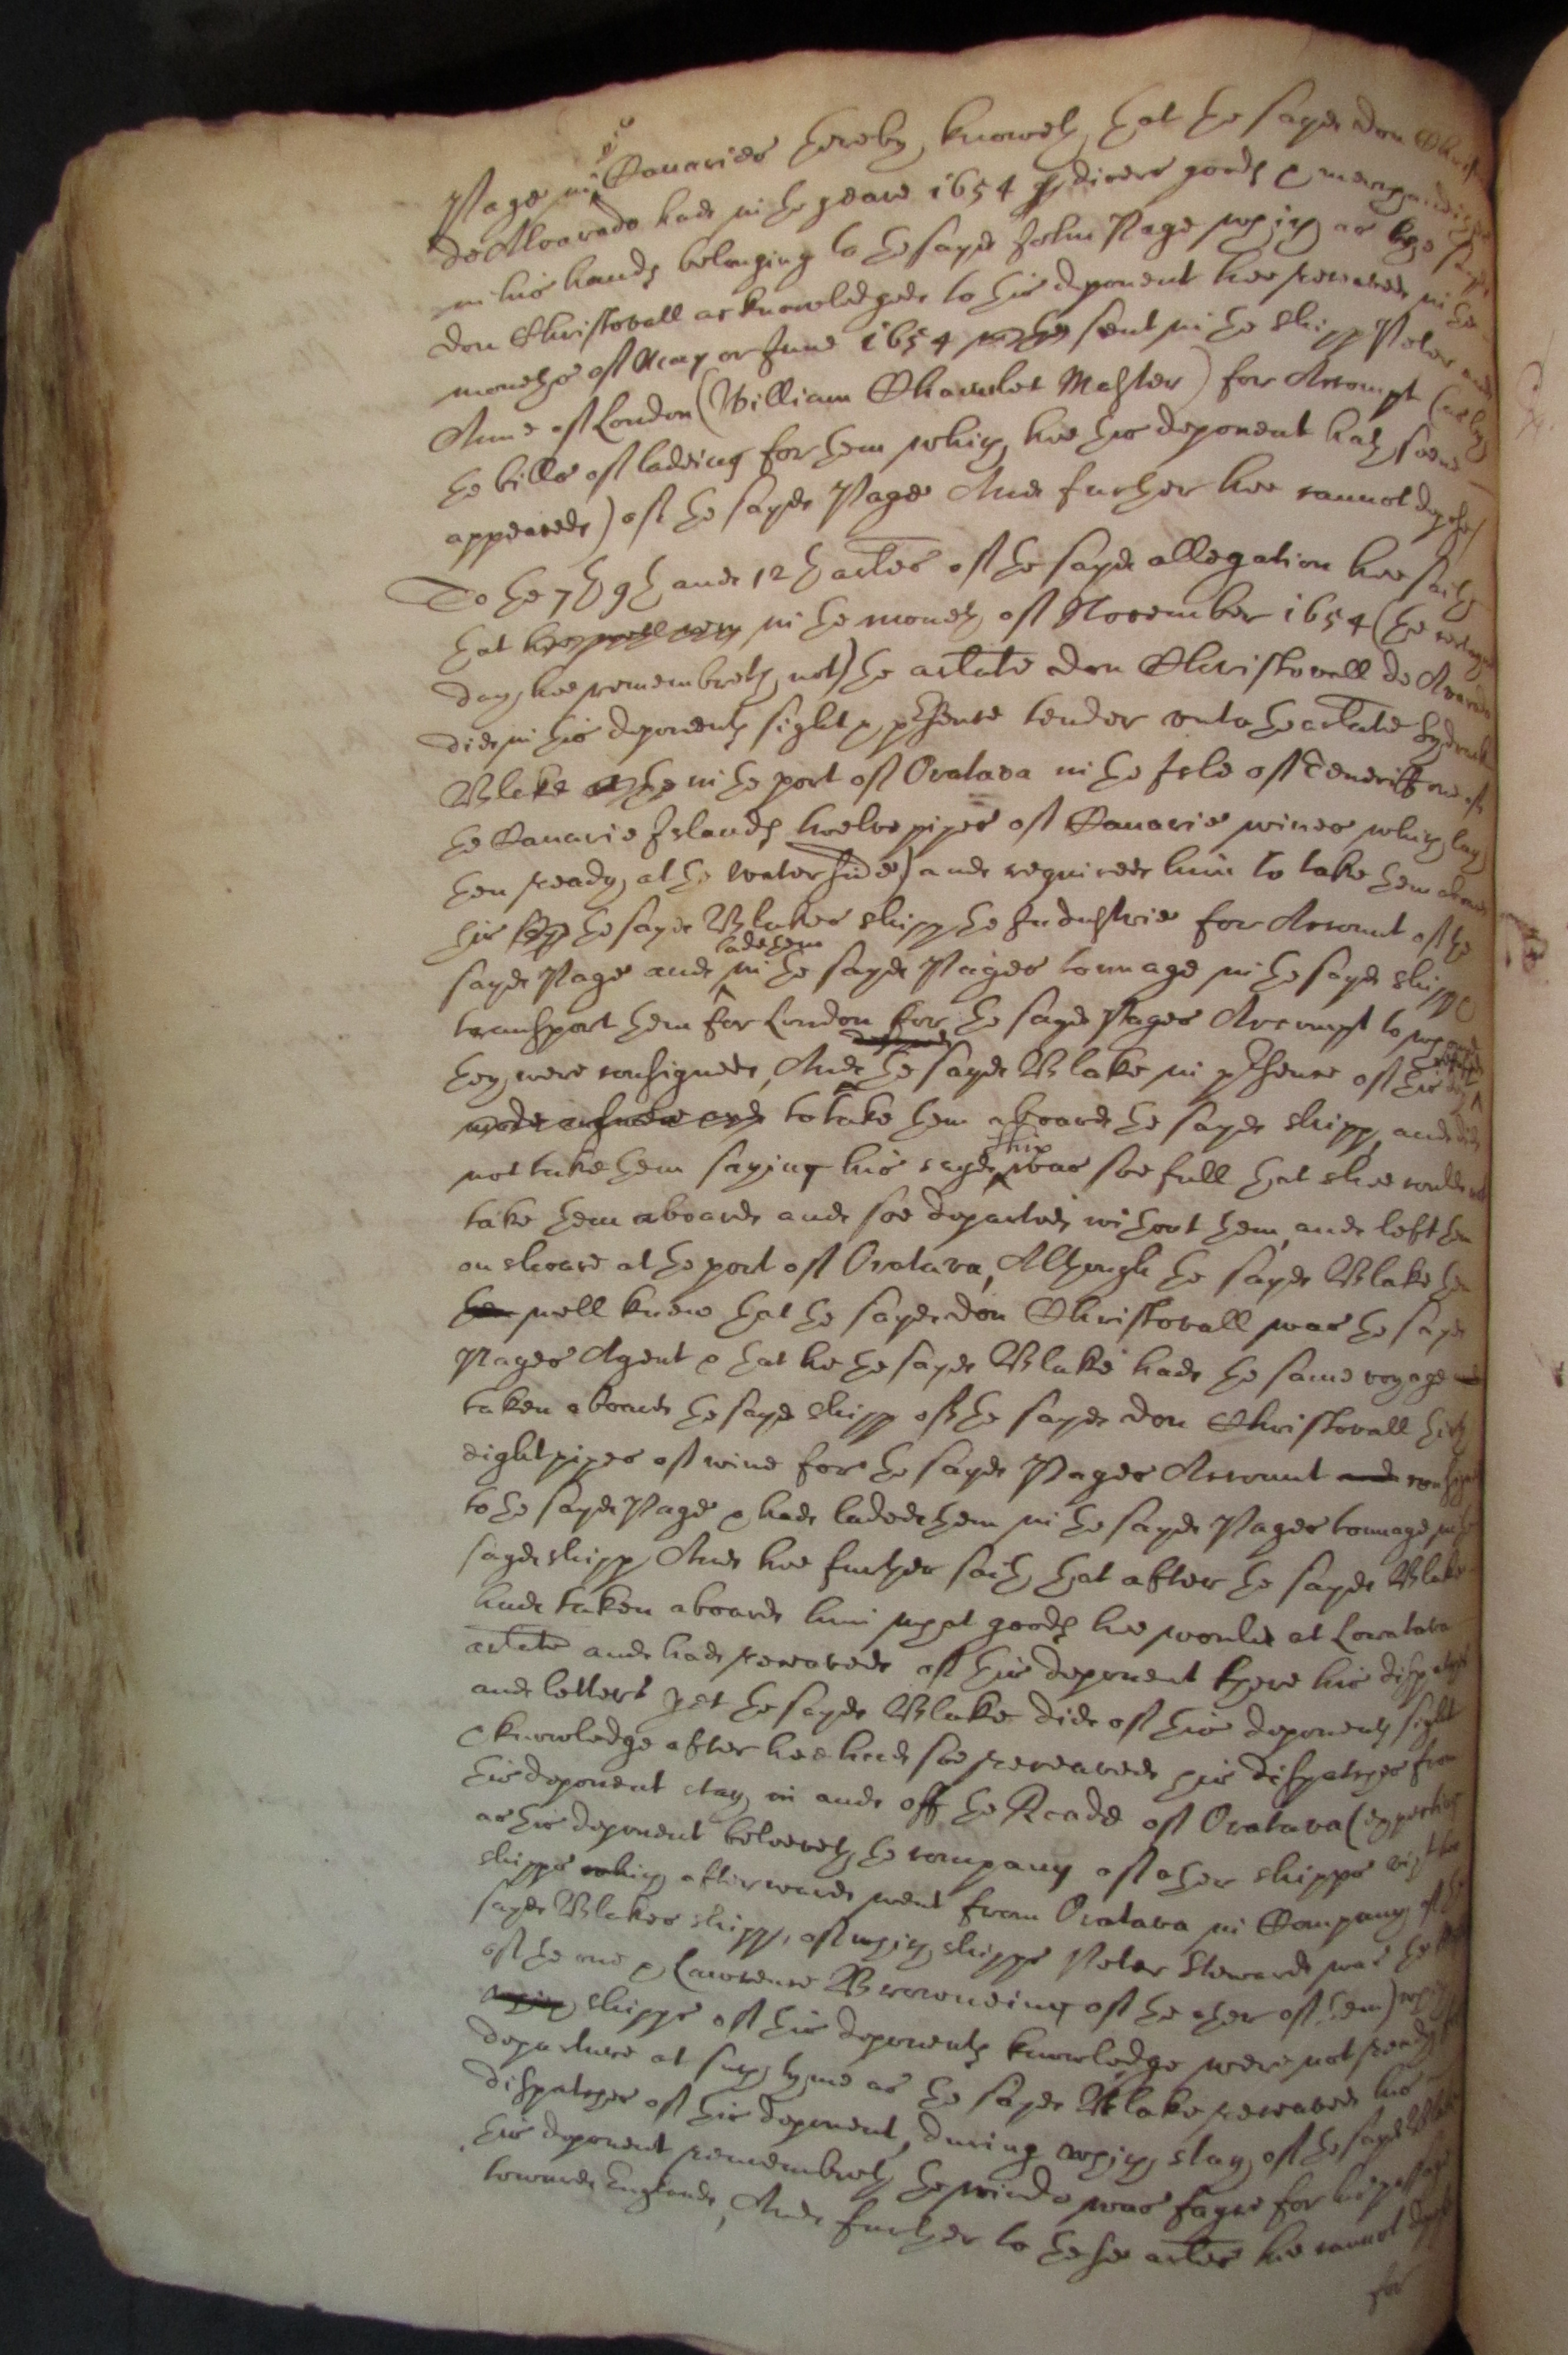 Page in the Canaries hereby knoweth that the sayd don Christ
de Alvarado had in the yeare 1654 divers goods & merchandizes
in his hands belonging to the sayd John Page which as hee the sayd
don Christovall acknowledged to this deponent hee receaved in the
moneths of May or June 1654 sent in the shipp Peter and
Anne of London (William Chamlet Master) for Accompt (as by
the bills of ladeing for them which hee this deponent hath seene
appeared) of the sayd Page And further hee cannot depose/
To the 7th 9th and 12th arlates of the sayd allegation hee saith
that in the moneth of November 1654 (the certayne
day hee remembreth not) the arlate don Christovall de Alvarado
did in this deponents sight & presence tender unto the arlate
Blake in the port of Oratava in the Isle of Teneriff one of
the Canarie Islands twelve pipes of Canarie wines which lay
then ready at the water side) and required him to take them aboard
his the sayd Blakes shipp the Industrie for Account of the
sayd Page and lade them in the sayd Pages tonnage in the sayd shipp &
transport them for London for the sayd Pages Accompt to whome
they were consigned, And the sayd Blake in presence of this
made answer and to take them aboard the sayd shipp, and did
not take them saying his sayd ship was soe full that shee could not
take them aboard and soe departed without them, and left them
on shoare at the port of Oratava, Although the sayd Blake then
well knew that the sayd don Christovall was the sayd
Pages Agent & that he the sayd Blake had the same voyage
taken aboard the sayd shipp of the sayd don Christovall
eight pipes of wine for the sayd Pages Account and consigned
to the sayd Page & had laded them in the sayd Pages tonnage in the
sayd shipp, And hee further saith that after the sayd Blake
had taken aboard him what goods hee would at Loratava
arlate and had receaved of this deponent there his dispatches
and letters yet the sayd Blake did of this deponents sight
& knowledge after hee had soe receaved his dispatches from
this deponent stay in and off the Roade of Oratava (expecting
as this deponent beleeveth the company of other shipps
shipps which afterwards went from Oratava in Company of the
sayd Blakes shipp, of which shipps Peter Steward was the
of the one & Lawrence Browneing of the other of them) which
shipps of this deponents knowledge were not ready for
departure at such tyme as the sayd Blake receaved his
dispatches of this deponent, during which stay of the sayd Blake
this deponent remembreth the winde was fayre for his passage
towards England, And further to these arles hee cannot depose
for